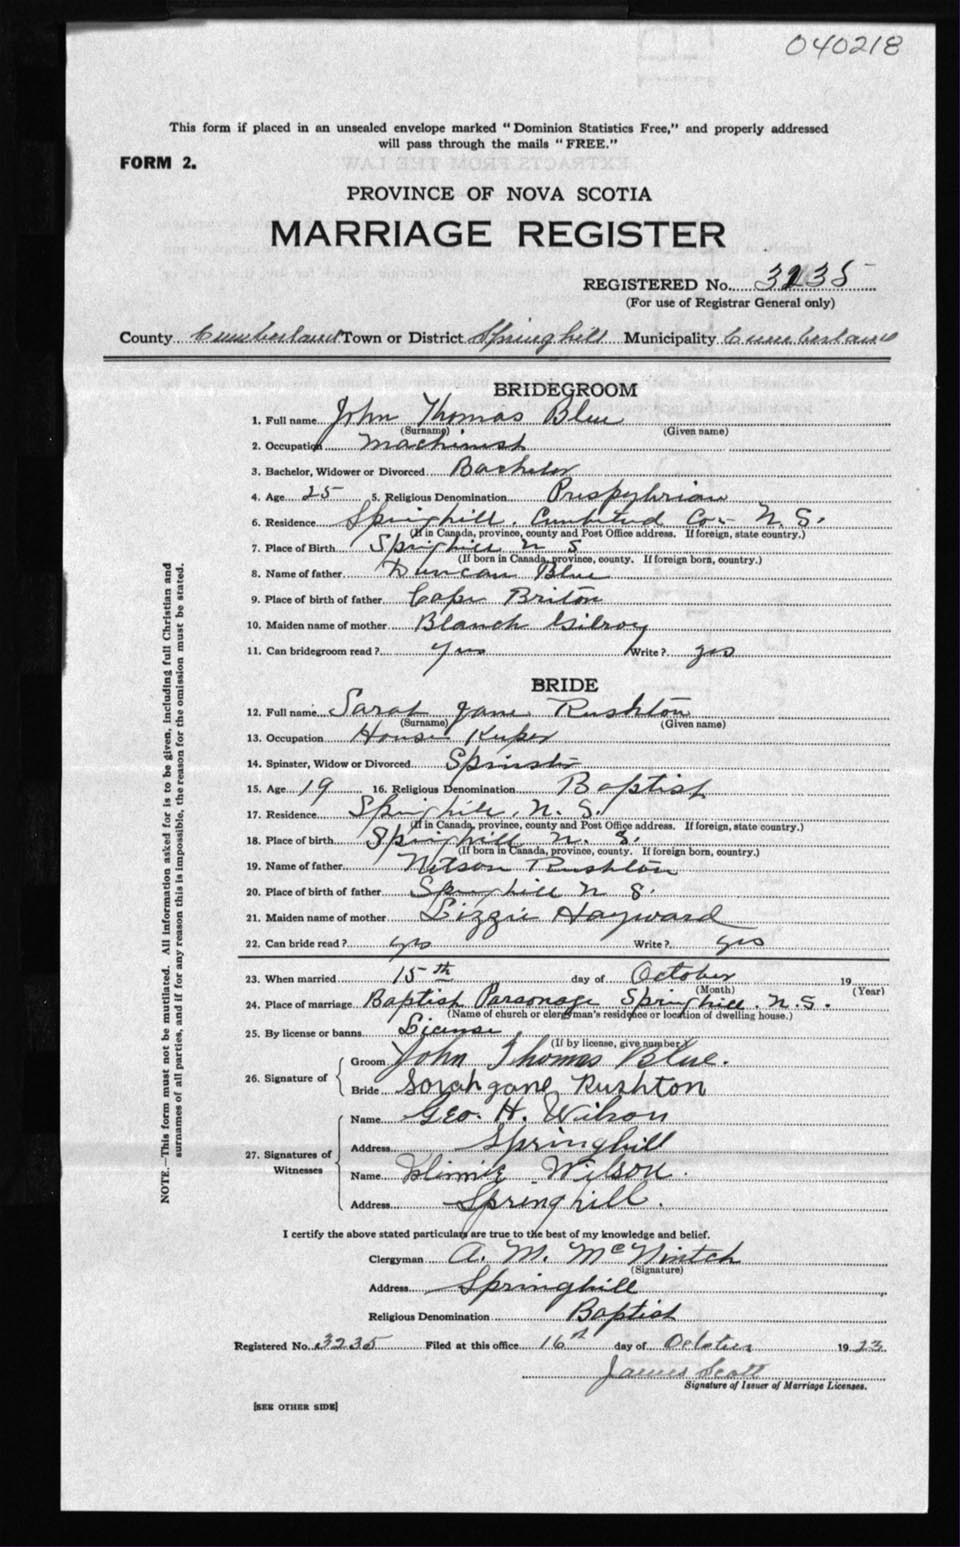 040218
This form if placed in an unsealed envelope marked "Dominion Statistics Free," and properly addressed
will pass through the mails "FREE."
FORM 2.
PROVINCE OF NOVA SCOTIA
MARRIAGE REGISTER
REGISTERED No. 3235
(For use of Registrar General only)
County Cumberland Town or District Springhill Municipality Cumberland
BRIDEGROOM
1. Full name John Thomas Blue
(Surname) (Given name)
2. Occupation Machinist
3. Bachelor, Widower or Divorced Bachelor
4. Age 25 5. Religious Denomination Prespyterian
6. Residence Springhill, Cumberland Co.- N. S.
(If in Canada, province, county and Post Office address. If foreign, state country.)
7. Place of Birth Springhill N S
(If born in Canada, province, county. If foreign born, country.)
8. Name of father Duncan Blue
9. Place of birth of father Cape Briton
10. Maiden name of mother Blanch Gilroy
11. Can bridegroom read? yes Write? yes
BRIDE
12. Full name Sarah Jane Rushton
(Surname) (Given name)
13. Occupation House Keeper
14. Spinster, Widow or Divorced Spinster
15. Age 19 16. Religious Denomination Baptist
17. Residence Springhill, N. S.
(If in Canada, province, county and Post Office address. If foreign, state country.)
18. Place of birth Springhill N. S.
(If born in Canada, province, county. If foreign born, country.)
19. Name of father Rushton
20. Place of birth of father Springhill N S.
21. Maiden name of mother Lizzie Hayward
22. Can bride read? yes Write? yes
23. When married 15th day of October 19
(Month) (Year)
24. Place of marriage Baptist Parsonage Springhill. N. S.
(Name of church or clergyman's residence or location of dwelling house.)
25. By license or banns License
(If by license, give number)
26. Signature of Groom John Thomas Blue.
Bride Sorah Jane Rushton
27. Signatures of Witnesses Name Geo. H. Wilson
Address Springhill
Name Wilson.
Address Springhill.
I certify the above stated particulars are true to the best of my knowledge and belief.
Clergyman A. M. McNintch
(Signature)
Address Springhill
Religious Denomination Baptist
Registered No. 3235 Filed at this office 16th day of October 1923
James Scott
Signature of Issuer of Marriage Licenses.
[SEE OTHER SIDE]
NOTE.—This form must not be mutilated. All information asked for is to be given, including full Christian and
surnames of all parties, and if for any reason this is impossible, the reason for the omission must be stated.